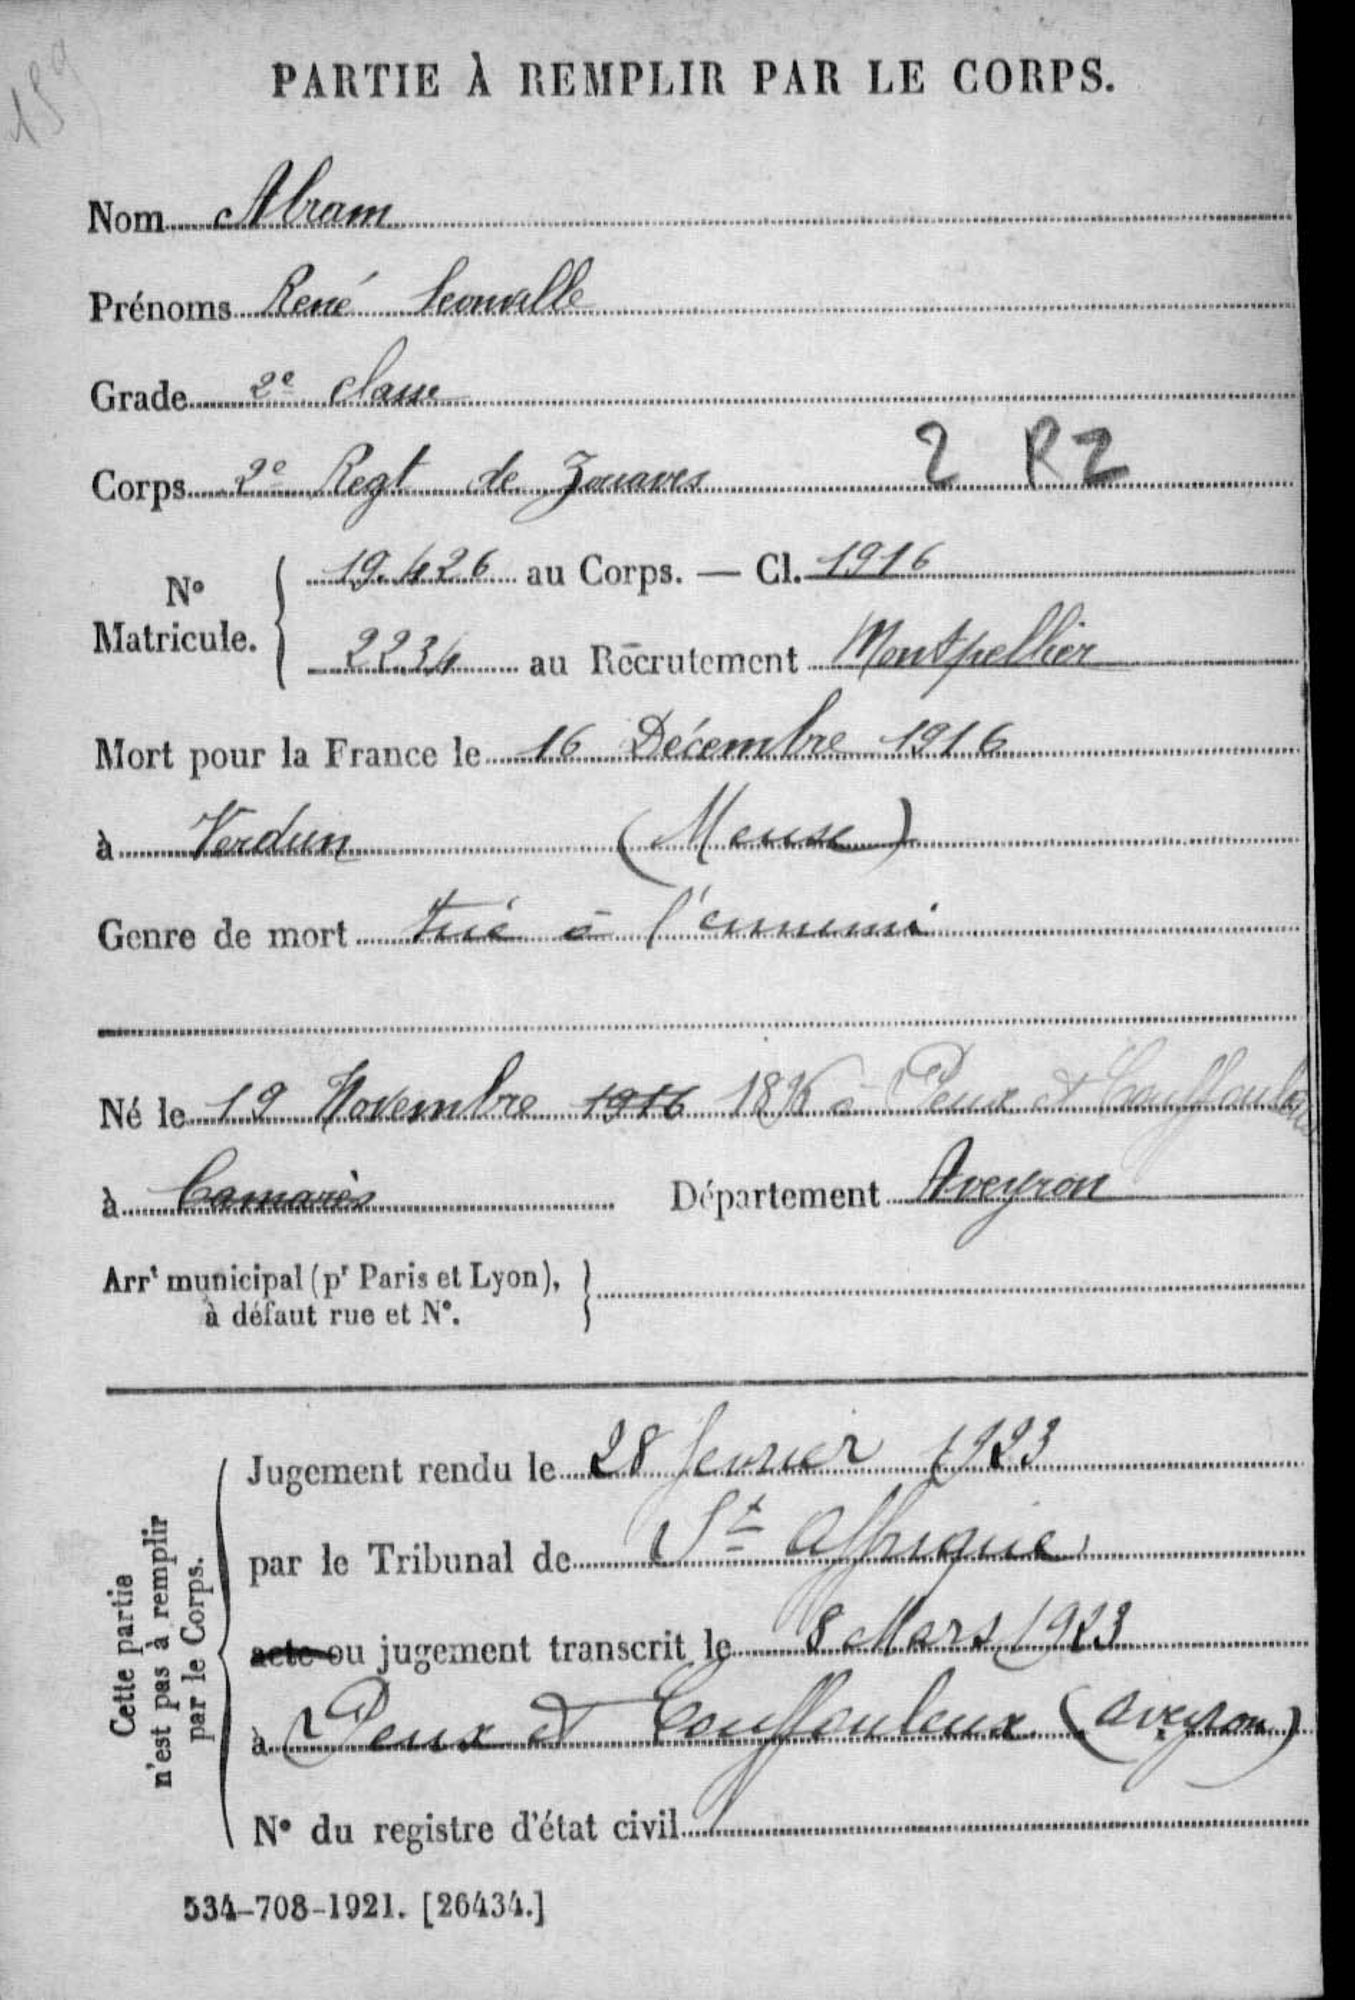 159
PARTIE À REMPLIR PAR LE CORPS.
Nom Abram
Prénoms René Leonville
Grade 2e classe
Corps 2e Regt de Zouaves 2 RZ
No Matricule. { 19.426 au Corps. — Cl. 1916
2234 au Recrutement Montpellier
Mort pour la France le 16 Décembre 1916
à Verdun (Meuse)
Genre de mort tué à l'ennemi
Né le 19 Novembre 1916 1896 à Peux et Couffouleux
à Camarès Département Aveyron
Arrt municipal (pr Paris et Lyon), }
à défaut rue et No.
Cette partie
n'est pas à remplir
par le Corps.
Jugement rendu le 28 fevrier 1923
par le Tribunal de St Affrique
acte ou jugement transcrit le 8 Mars 1923
à Peux et Couffouleux (Aveyron)
No du registre d'état civil
534-708-1921. [26434.]